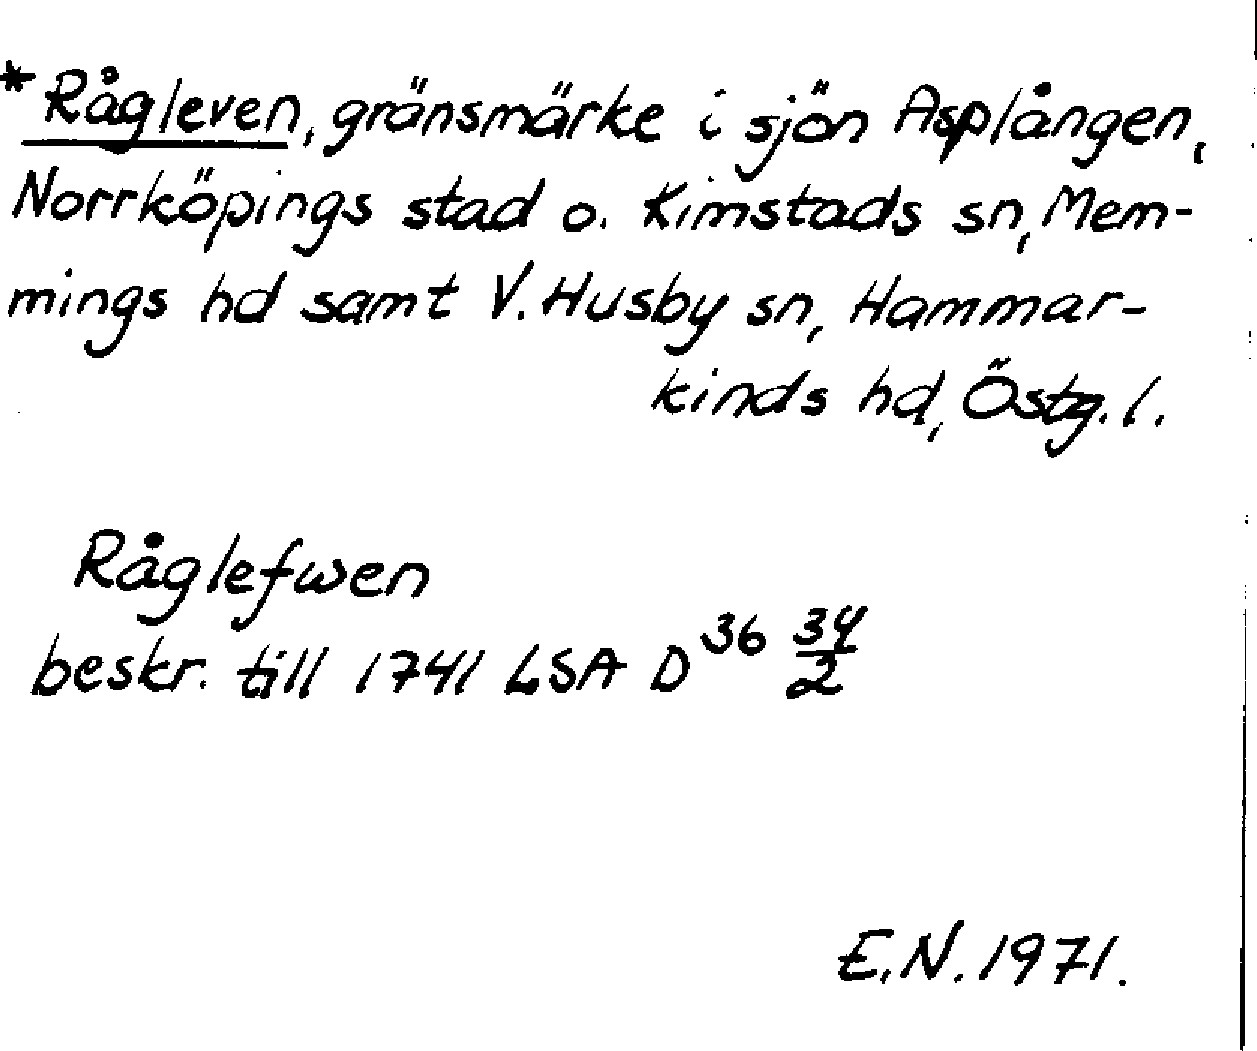 *Rågleven, gränsmärke i sjön Asplången,
Norrköpings stad o. Kimstads sn, Mem-
mings hd samt V. Husby sn, Hammar-
kinds hd, Östg. l.
Råglefwen
beskr. till 1741 LSA D³⁶ 34/2
E.N. 1971.